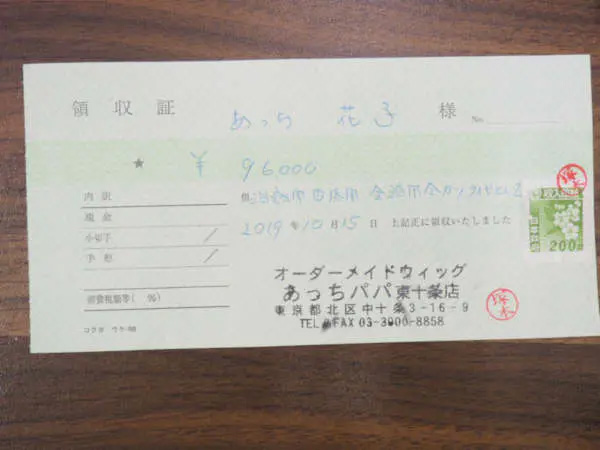 領収証 あっち 花子 様 No.
★ ¥ 96000
内訳 但
現金 2019年10月15日 上記正に領収いたしました
小切手 /
手形 /
消費税額等( %)
コクヨ ウケ-98
収入印紙
日本政府
200
オーダーメイドウィッグ
あっちパパ 東十条店
東京都北区中十条3-16-9
TEL FAX 03-3900-8858